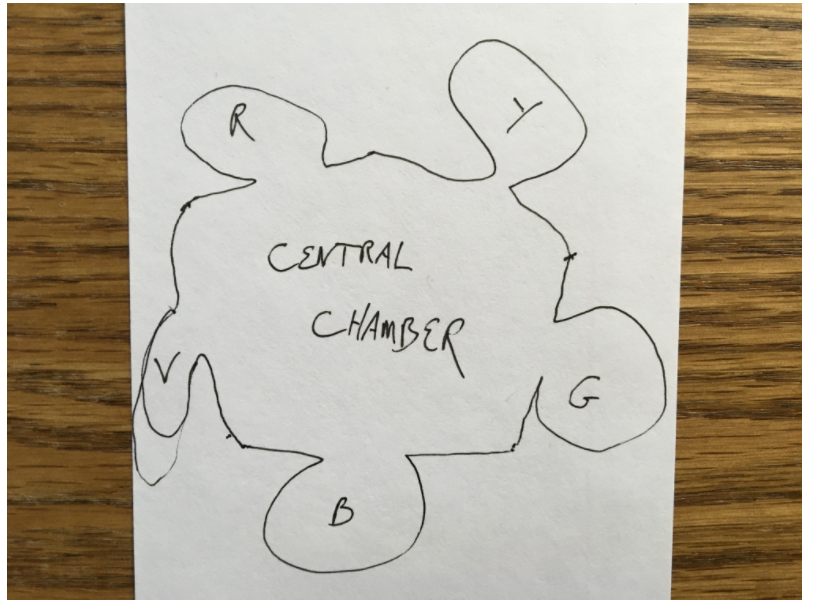 R
Y
CENTRAL
CHAMBER
V
G
B